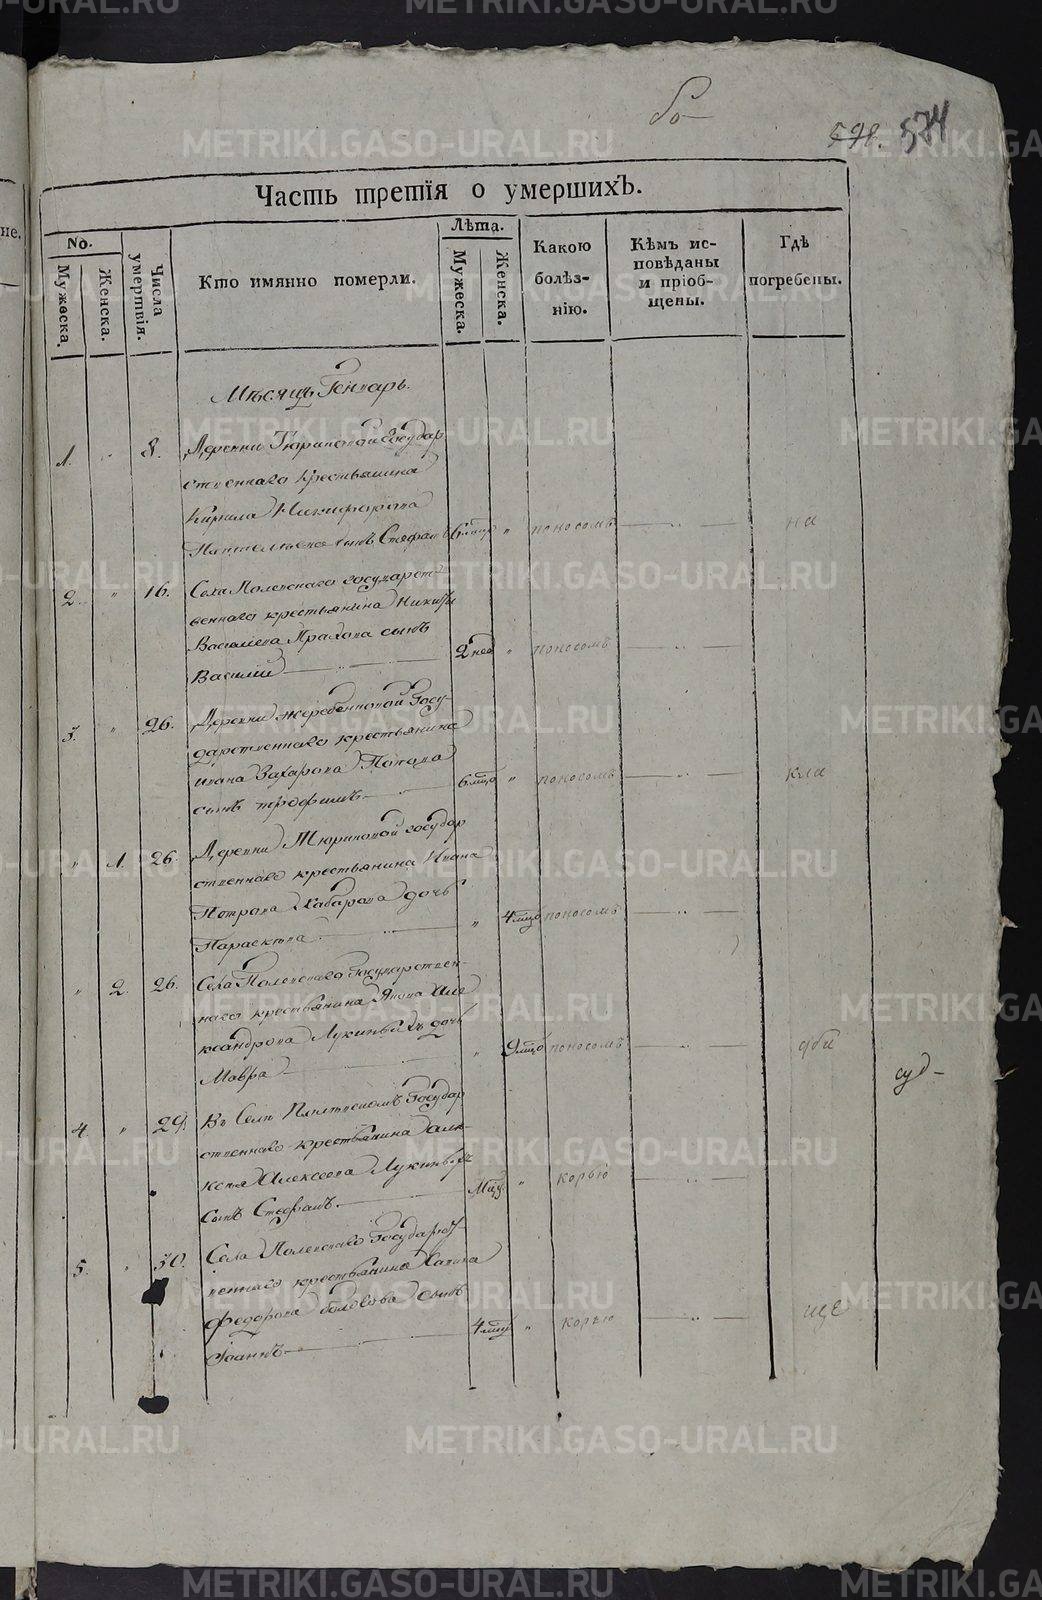 598. 574
Часть третія о умершихъ.
No.
Мужеска.
Женска.
Числа умертвія.
Кто имянно померли.
Лѣта.
Мужеска.
Женска.
Какою болѣз-нію.
Кѣмъ ис-повѣданы и пріоб-щены.
Гдѣ погребены.
Мѣсяцъ Генварь.
1. " 8. Деревни Тюриковой Государ
ственнаго крестьянина
Кирила Никифорова
сынъ Стефанъ " поносомъ на
2. " 16. Села Полевскаго государст-
веннаго крестьянина Никиты
Васильева сынъ
Василій 2 нед " поносомъ
3. " 26. Деревни Жеребенковой Госу-
дарственнаго крестьянина
Ивана Захарова Попова
сынъ Трофимъ 6 мцо " поносомъ кла
" 1. 26. Деревни Тюриковой государ
ственнаго крестьянина Ивана
Петрова Хабарова дочь
Параскева " 4 мцо поносомъ
" 2. 26. Села Полевскаго Государствен-
наго крестьянина Якова Але
ксандрова Лукиныхъ дочь
Мавра " 9 мцо поносомъ дби
суд-
4. " 29. Въ Селѣ Государ
ственнаго крестьянина Але-
ксѣя Алексеева Лукиныхъ
сынъ Стефанъ. Мцу. " корью
5. " 30. Села Полевскаго Государст
веннаго крестьянина
Федорова сынъ
Іоаннъ 4 мцу " корью ще
METRIKI.GASO-URAL.RU